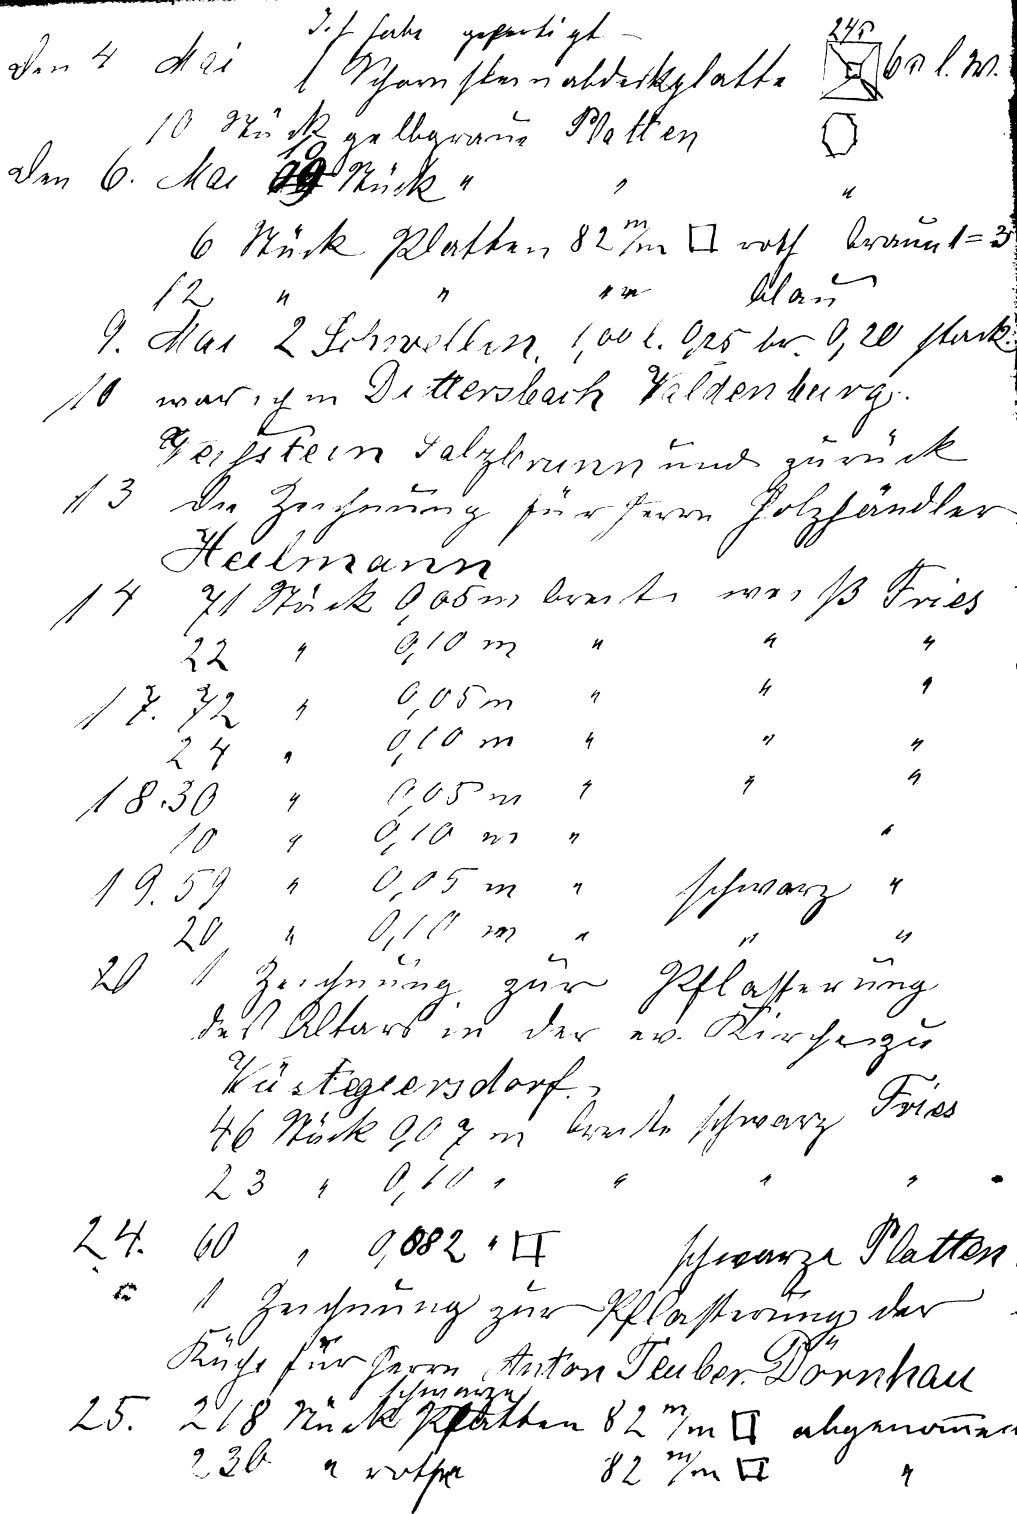 Ich habe gefertigt
Den 4 Mai 1 Schornsteinabdeckplatte 24 6 l. W.
10 Stück gelbgraue Platten
Den 6. Mai 10 Stück " " "
6 Stück Platten 82 m/m □ roth braun 1=3
12 " " " " blau
9. Mai 2 Schwellen, 1,00 l. 0,25 br. 0,20 stark.
10 war ich in Dittersbach Waldenburg.
Salzbrunn und zurück
13 Die Zeichnung für Herrn Holzhändler
Heilmann
14 71 Stück 0,05 m breite weiß Fries
22 " 0,10 m " " "
17. 72 " 0,05 m " " "
24 " 0,10 m " " "
18. 30 " 0,05 m " " "
10 " 0,10 m " "
19. 59 " 0,05 m " schwarz "
20 " 0,10 m " " "
20 1 Zeichnung zur Pflasterung
des Altars in der ev. Kirche zu
Wüstegiersdorf.
46 Stück 0,07 m breite schwarz Fries
23 " 0,10 " " " "
24. 60 " 0,082 " □ schwarze Platten
" 1 Zeichnung zur Pflasterung der
Küche für Herrn Anton Teuber. Dörnhau
schwarze
25. 218 Stück Platten 82 m/m □ abgenom̅en
230 " rothe 82 m/m □ "